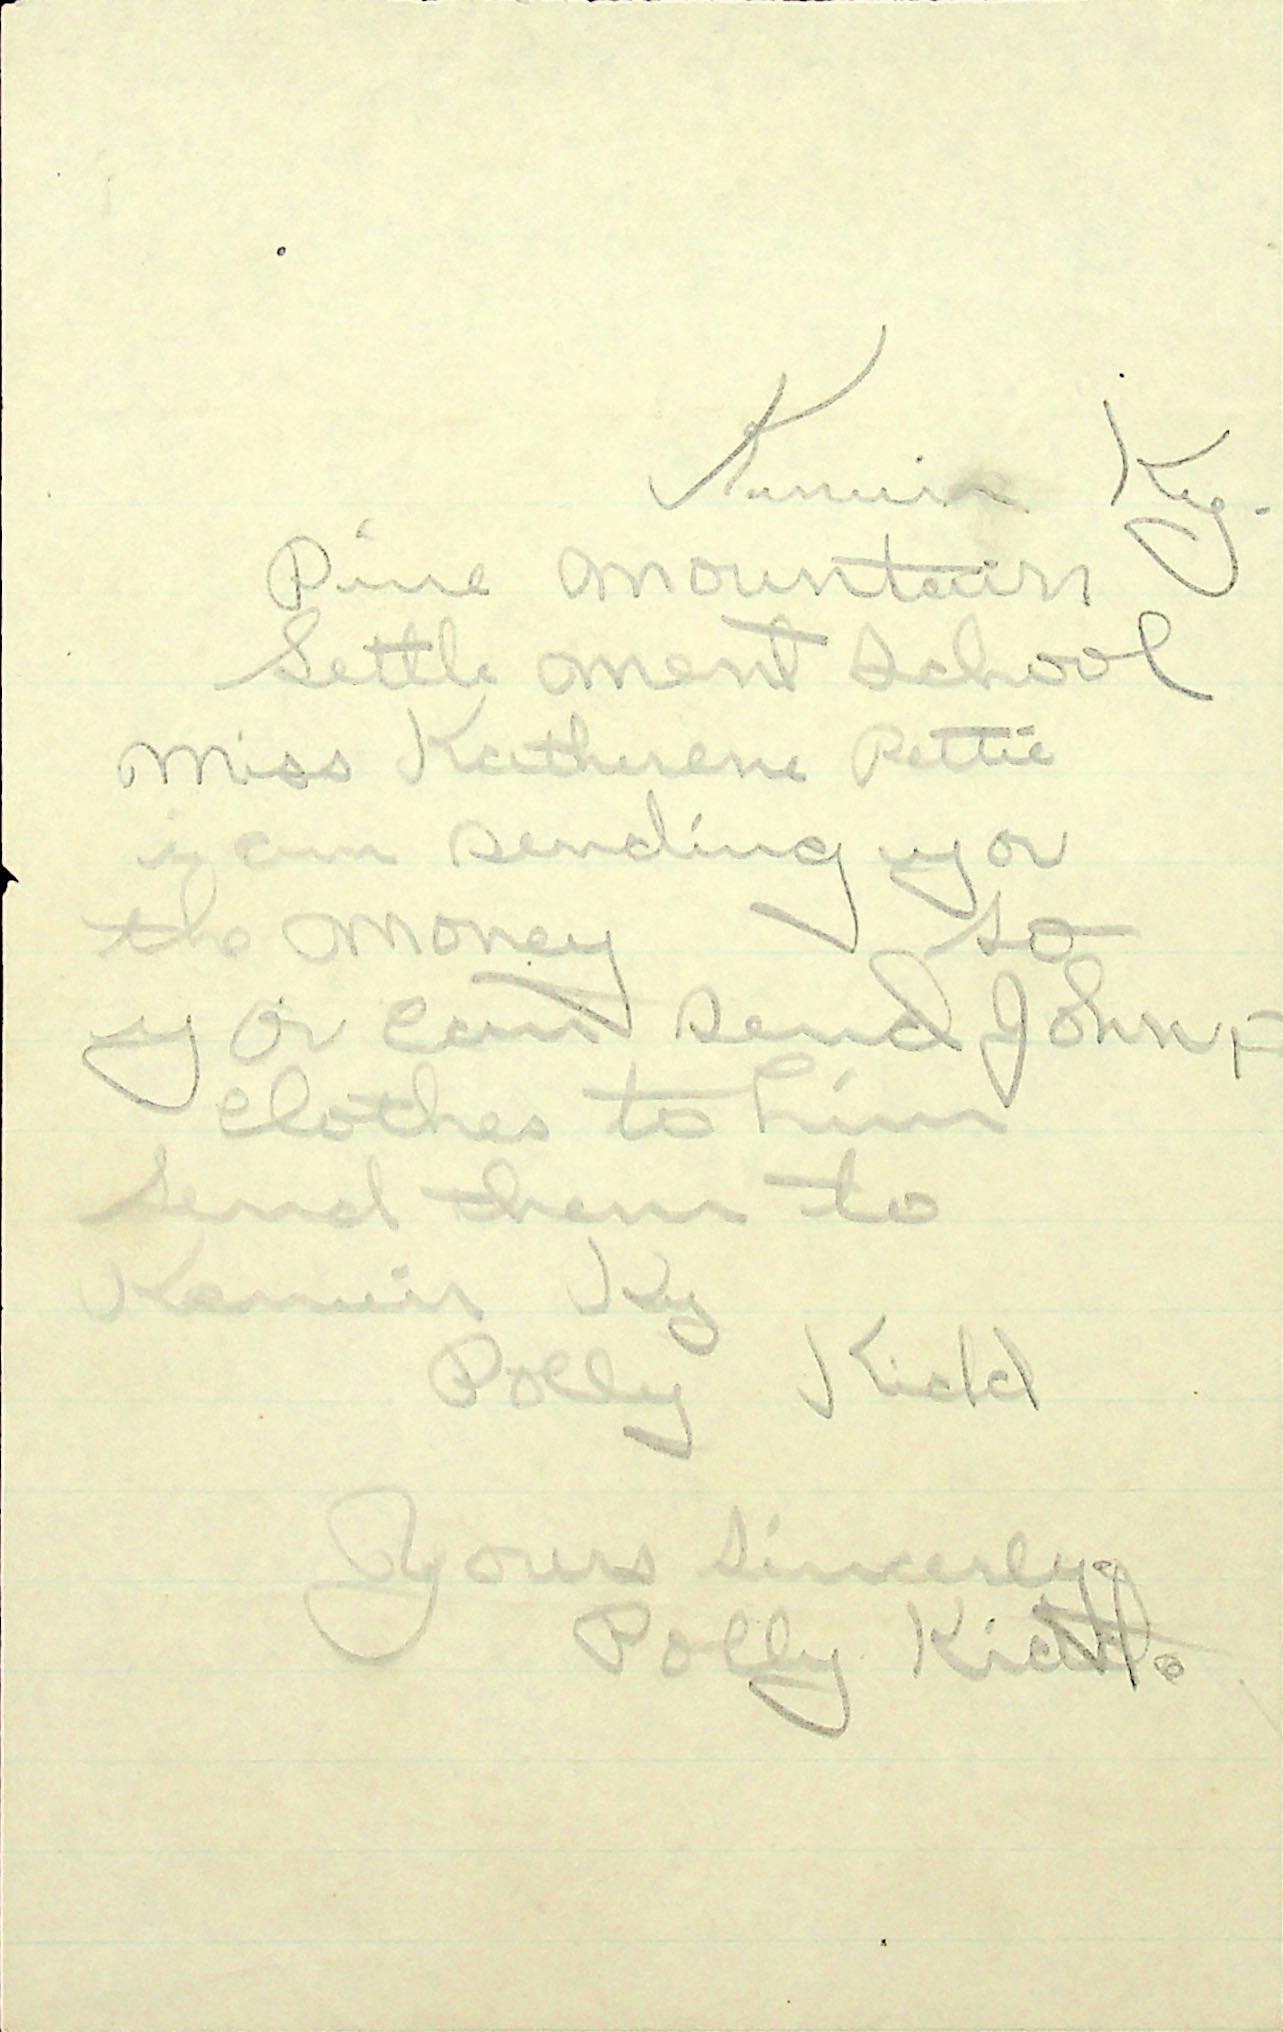 Kanuir Ky.
Pine mountain
Settle ment school
Miss Katherene Pettie
i am sending yor
the money so
yor can send John
clothes to him
send them to
Kanuir Ky
Polly Kidd
Yours Sincerly.
Polly Kidd.